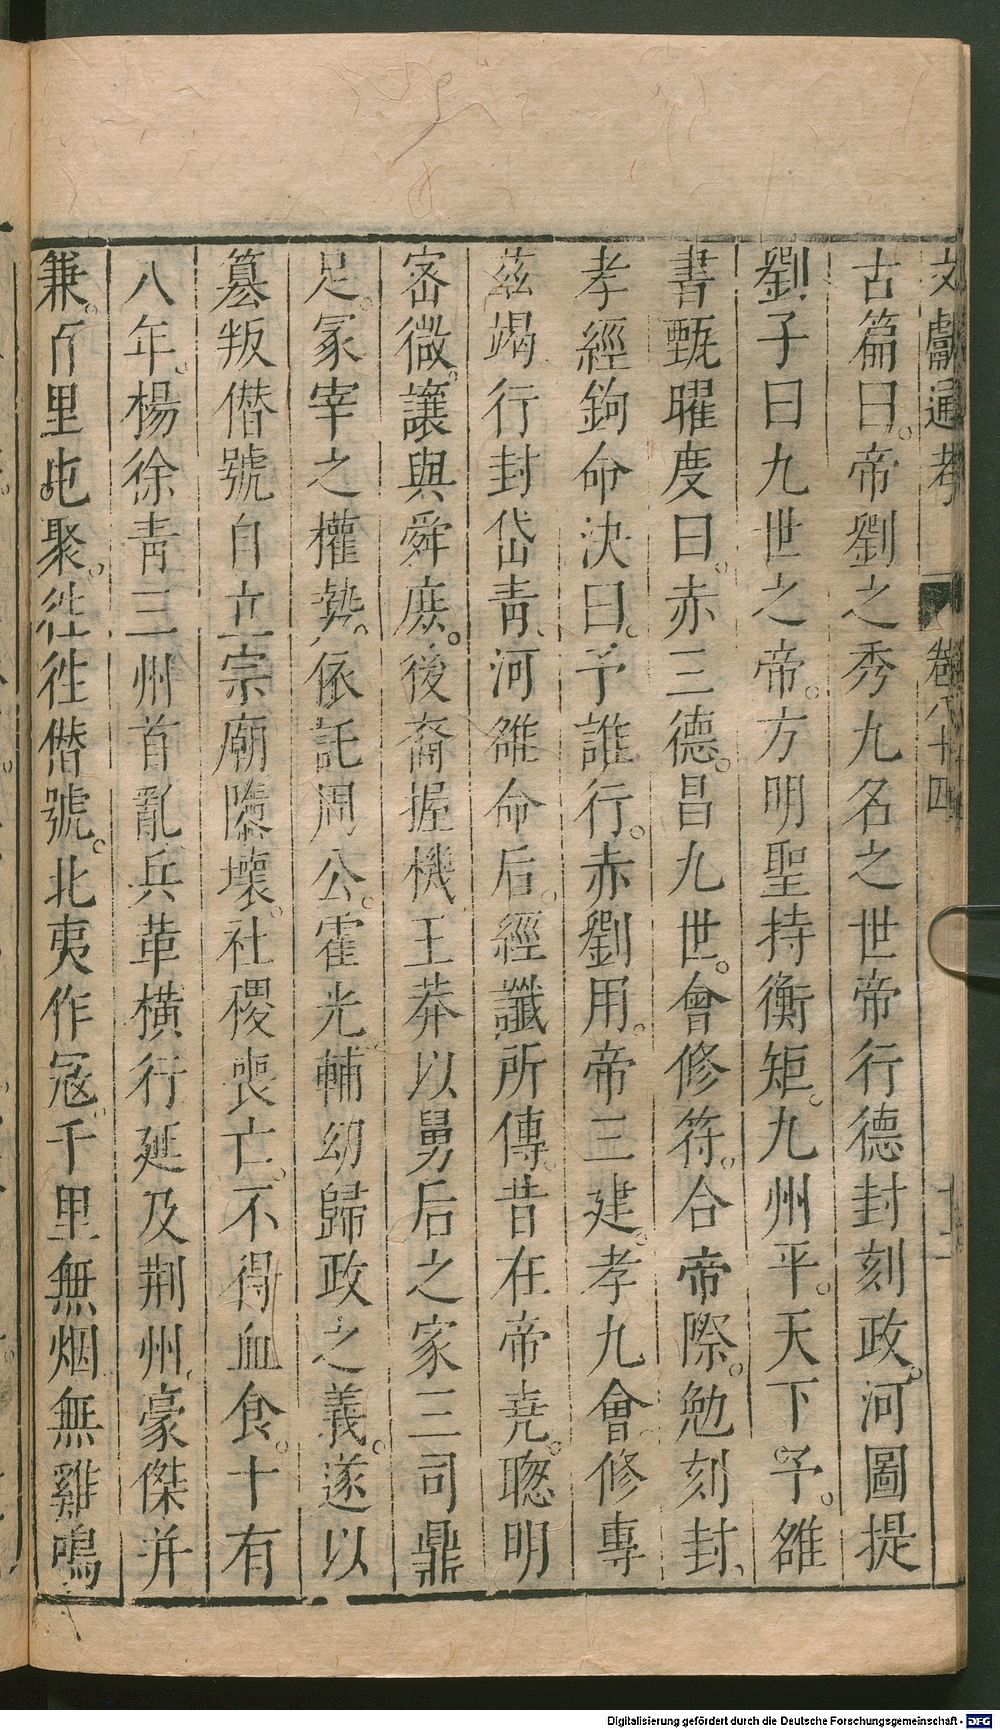 文獻通考 卷八十四 十二
古篇曰。帝劉之秀九名之世帝行德封刻政。河圖提
劉子曰九世之帝。方明聖持衡矩。九州平。天下予。雒
書甄曜度曰。赤三德。昌九世。會修符。合帝際。勉刻封、
孝經鉤命決曰。予誰行。赤劉用。帝三建。孝九會修專
茲竭行封岱靑、河雒命后。經讖所傳。昔在帝堯。聰明
宻微。讓與舜庶。後裔握機王莽以舅后之家三司鼎
足。冢宰之權勢。依託周公。霍光輔幼歸政之義。遂以
簒叛僭號自立宗廟隳壞。社稷喪亡。不得血食。十有
八年。楊徐靑三州首亂兵革橫行延及荆州。豪傑并
兼。百里屯聚。徃徃僭號。北夷作寇。千里無烟無雞鳴
Digitalisierung gefördert durch die Deutsche Forschungsgemeinschaft - DFG